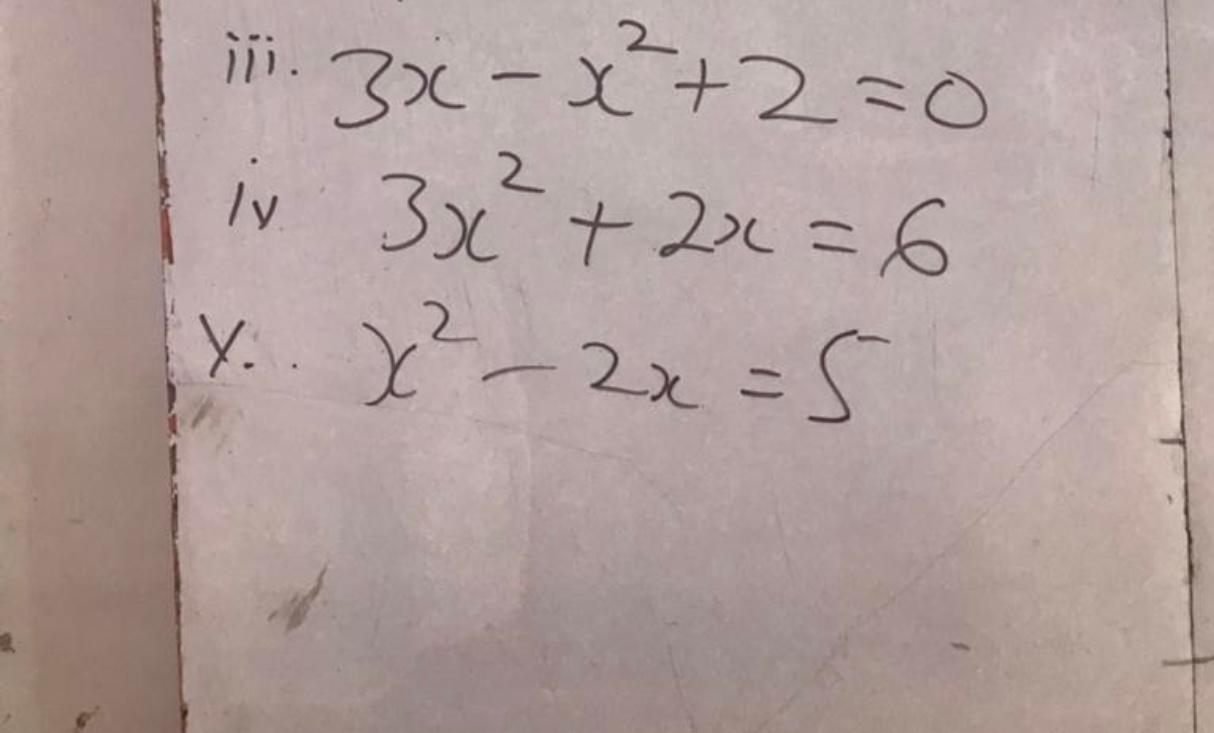 iii. 3x - x² + 2 = 0
iv 3x² + 2x = 6
v. x² - 2x = 5